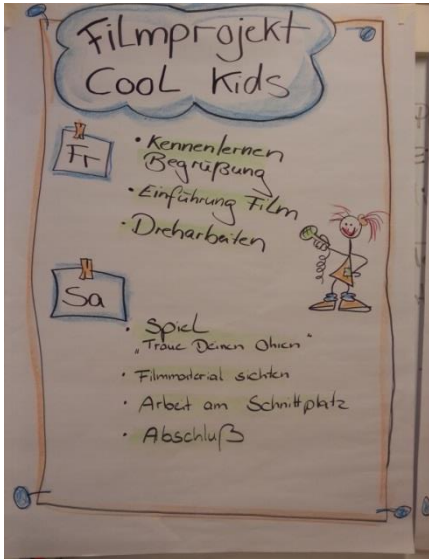 Filmprojekt
Cool Kids
Fr
• Kennenlernen
Begrüßung
• Einführung Film
• Dreharbeiten
Sa
• Spiel
„Traue Deinen Ohren"
• Filmmaterial sichten
• Arbeit am Schnittplatz
• Abschluß